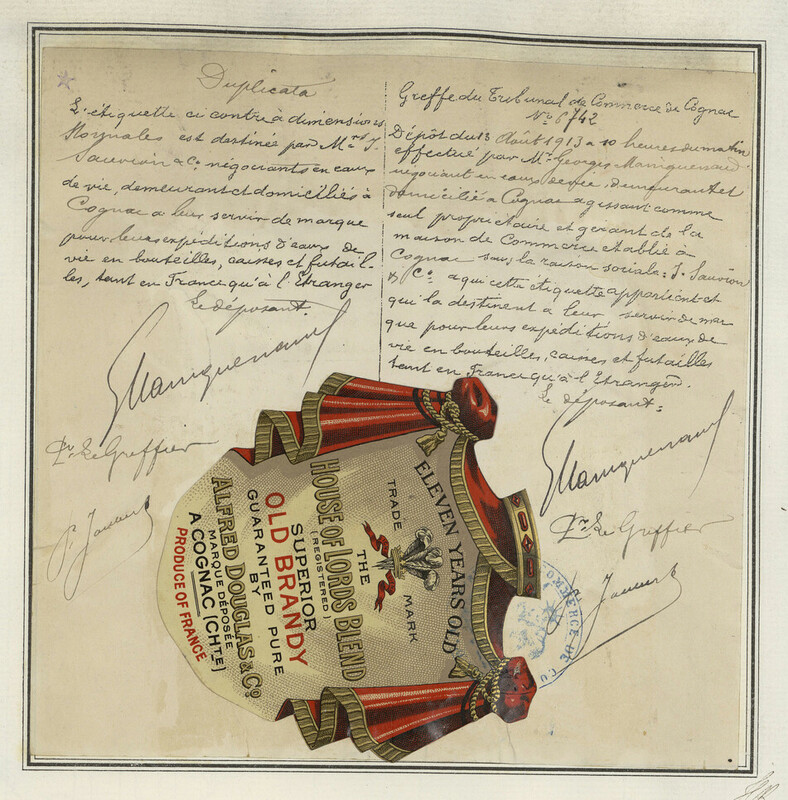 Duplicata
L'étiquette ci contre à dimensions
Normales est destinée par Mrs J.
Sauvion & Co négociants en eaux
de vie, demeurant et domiciliés à
Cognac a leur servir de marque
pour leurs expéditions d'eaux de
vie en bouteilles, caisses et futail-
les, tant en France qu'à l'Etranger
Le déposant.
GManiquenaud
Pr Le Greffier
Greffe du Tribunal de Commerce de Cognac
No 6742
Dépôt du 13 Août 1913 a 10 heures du matin
effectué par Mr Georges Maniquenaud
négociant en eaux de vie, demeurant et
domicilié a Cognac agissant comme
seul propriétaire et gérant de la
maison de Commerce établie à
Cognac sous la raison sociale: J. Sauvion
& Co a qui cette étiquette appartient et
qui la destinent a leur servir de mar
que pour leurs expéditions d'eaux de
vie en bouteilles, caisses et futailles
tant en France qu'à l'Etranger.
Le déposant:
GManiquenaud
Pr Le Greffier
ELEVEN YEARS OLD
TRADE MARK
THE
HOUSE OF LORDS BLEND
(REGISTERED)
SUPERIOR
OLD BRANDY
GUARANTEED PURE
BY
ALFRED DOUGLAS & Co
MARQUE DÉPOSÉE
A COGNAC (CHTE)
PRODUCE OF FRANCE
COMMERCE DE CO